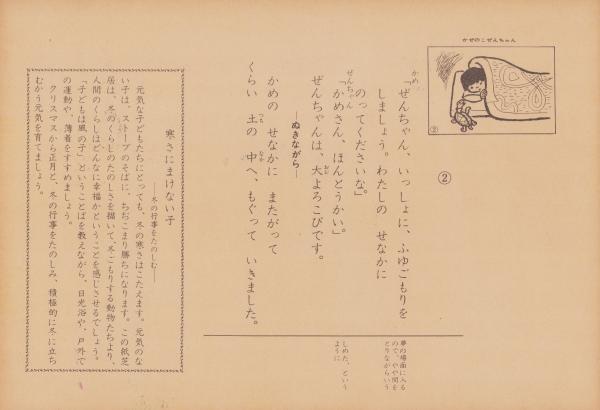 かぜのこぜんちゃん
②
②
かめ「ぜんちゃん、いっしょに、ふゆごもりを
しましょう。わたしの せなかに
のってくださいな」
ぜんちゃん「かめさん、ほんとうかい」
ぜんちゃんは、大よろこびです。
―ぬきながら―
かめの せなかに またがって
くらい 土の 中へ、もぐって いきました。
夢の場面に入る
ので、やや間を
とりながらいう
しめた、という
ように
寒さにまけない子
――冬の行事をたのしむ――
元気な子どもたちにとっても、冬の寒さはこたえます。元気のな
い子は、ストーブのそばに、ちぢこまり勝ちになります。この紙芝
居は、冬のくらしのたのしさを描いて、冬ごもりする動物たちより、
人間のくらしはどんなに幸福かということを感じさせるでしょう。
「子どもは風の子」ということばを教えながら、日光浴や、戸外で
の運動や、薄着をすすめましょう。
クリスマスから正月と、冬の行事をたのしみ、積極的に冬に立ち
むかう元気を育てましょう。